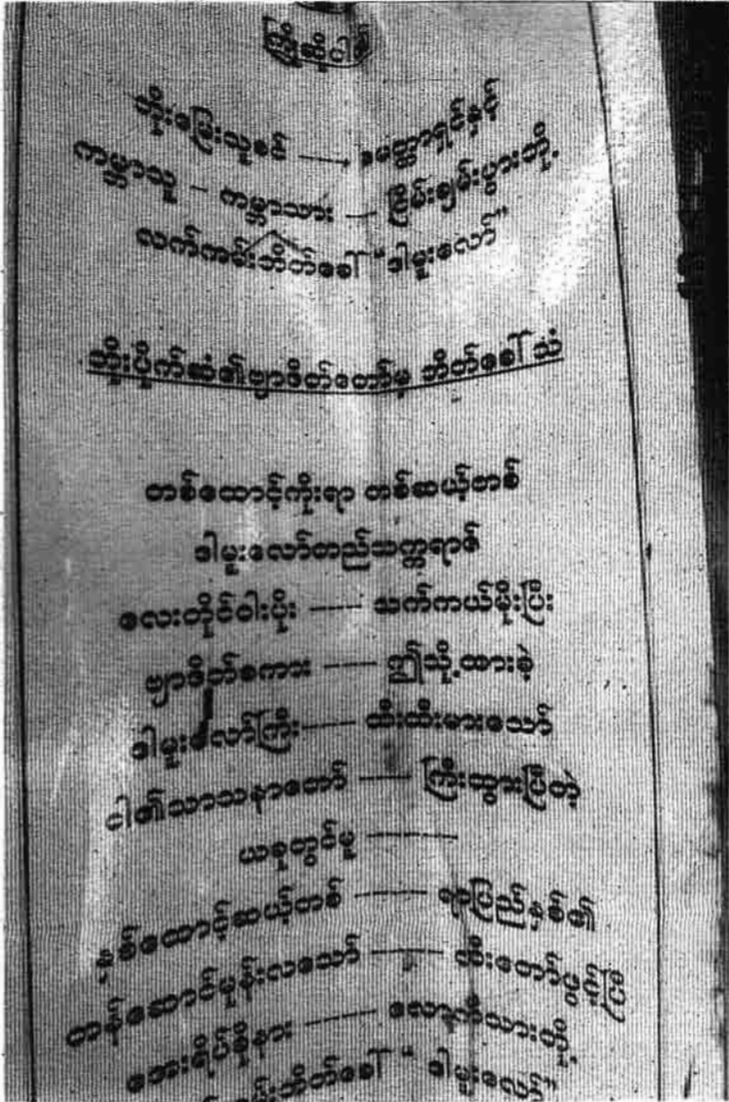 ကြိုဆိုငါ၏
ဘိုးမြေးသူစင် — မေတ္တာရှင်နှင့်
ကမ္ဘာသူ – ကမ္ဘာသား — ငြိမ်းချမ်းပွားဘို့
လက်ကမ်းဘိတ်ခေါ် "ဒါမူးလော်"
ဘိုးပိုက်ဆံ၏ဗျာဒိတ်တော်မှ ဘိတ်ခေါ်သံ
တစ်ထောင့်ကိုးရာ တစ်ဆယ့်တစ်
ဒါမူးလော်တည်သက္ကရာဇ်
လေးတိုင်ဝါးပိုး — သက်ကယ်မိုးပြီး
ဗျာဒိတ်စကား — ဤသို့ထားခဲ့
ဒါမူးလော်ကြီး — ထီးထီးမားသော်
ငါ၏သာသနာတော် — ကြီးထွားပြီတဲ့
ယခုတွင်မူ —
နှစ်ထောင့်ဆယ့်တစ် — ရာပြည်နှစ်၏
တန်ဆောင်မုန်းလသော် — ထီးတော်ဖွင့်ပြီ
အေးရိပ်ခိုနား — လောကီသားတို့
ဘိတ်ခေါ် "ဒါမူးလော်"